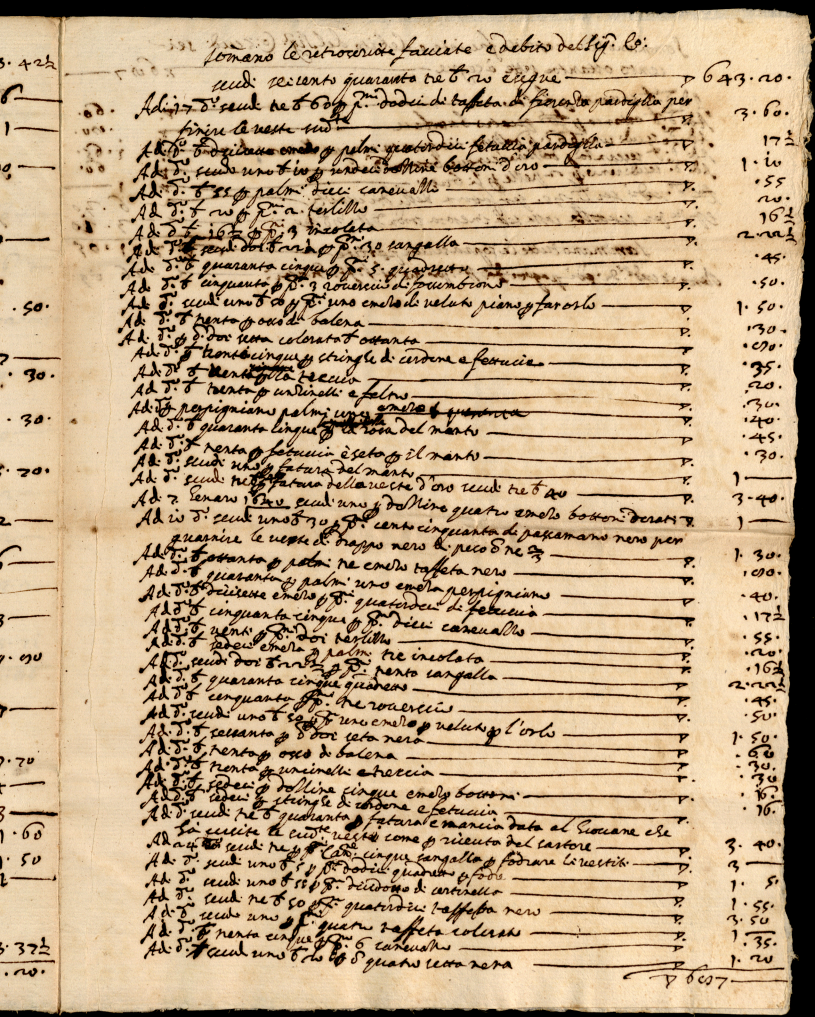 3. 42½
6
1
.50.
.30.
.30.
5. 20.
2
6
3
7. 90
7. 20
3
1. 60
1. 50
3. 37½
. 20.
somano le retroscritte facciate e debito del Sig.
scudi seicento quaranta tre b 20 e segue 643.20.
Adi 17 d.º scudi tre b 60 p p.mi dodici di taffeta di fiorenza pardiglia per 3.60.
finire le veste
Ad d.º b p palmi quatordici fetuccia pardiglia 17½
Ad d.º scudo uno b 10 p undici dozzine bottoni d'oro 1.10
Ad d.º b 55 p palmi dieci canevallo .55
Ad d.º b 20 p p.mi 2 terlillo 20.
Ad d.º b 16½ p p.mi 3 incolata 16½
Ad d.º scudi doi b 22½ p p.mi 30 sangalla 2.22½
Ad d.º b quaranta cinque p p.mi 5 quadretto .45.
Ad d.º b cinquanta p p.mi 3 roverscio .50.
Ad d.º scudi uno b 50 p p.mi uno emezo di veluto piano p far orlo 1.50.
Ad d.º b trenta p osso di balena .30.
Ad d.º p d.e doi setta colorata b ottanta .80.
Ad d.º b trentacinque p stringhe di cordone e fettuccie .35
Ad d.º b treccia .20.
Ad d.º b trenta p uncinelli e feltro .30.
Ad d.º p perpigniano palmi uno emezo .40.
Ad d.º b quaranta cinque del manto .45.
Ad d.º b trenta p fetuccia e seta p il manto .30.
Ad d.º scudi uno p fatura del manto 1
Ad d.º scudi tre p fatura della veste d'oro scudi tre b 40 3.40.
Ad 7 Genaro 1640 scudi uno p dozzine quatro emezo bottoni dorati 1
Ad 10 d.º scudi uno b 30 p p.mi cento cinquanta di passamano nero per
guarnire le veste di drappo nero di peso 1.30.
Ad d.º b ottanta p palmi tre emezo taffeta nero .80.
Ad d.º b quaranta p palmi uno emezo perpigniano .40.
Ad d.º b diecisette emezo p p.mi quatordici di fetuccia .17½
Ad d.º b cinquanta cinque p p.mi dieci canevallo .55.
Ad d.º b venti p p.mi doi terlillo .20.
Ad d.º b sedeci emezo p palmi tre incolata .16½
Ad d.º scudi doi b 22½ p p.mi trenta sangalla 2.22½
Ad d.º b quaranta cinque quadretto .45.
Ad d.º b cinquanta p p.mi tre roverscio .50.
Ad d.º scudi uno b 50 p p.mi uno emezo p veluto p l'orlo 1.50.
Ad d.º b sessanta p d.e doi seta nera .60
Ad d.º b trenta p osso di balena .30.
Ad d.º b trenta p uncinelli e treccia .30
Ad d.º b sedeci p dozzine cinque emezo bottoni .16.
Ad d.º b sedeci p stringhe di cordone e fetuccia .16.
Ad d.º scudi tre b quaranta p fatura e mancia data al Giovane che
ha cusite le sud.te veste come p riceuta del sartore 3.40.
Ad 24 scudi tre p p.mi cinque sangalla p fodrare li vestiti 3
Ad d.º scudi uno b 5 p p.mi dodici quadretto p fodre 1.5.
Ad d.º scudi uno b 55 p p.mi dicidotto di cortinella 1.55.
Ad d.º scudi tre b 50 p p.mi quatordici taffetta nero 3.50
Ad d.º scudi uno p p.mi quatro taffeta colorato 1
Ad d.º b trenta cinque p p.mi 6 canevallo .35.
Ad d.º scudi uno b 20 p d.e quatro setta nera 1.20
687